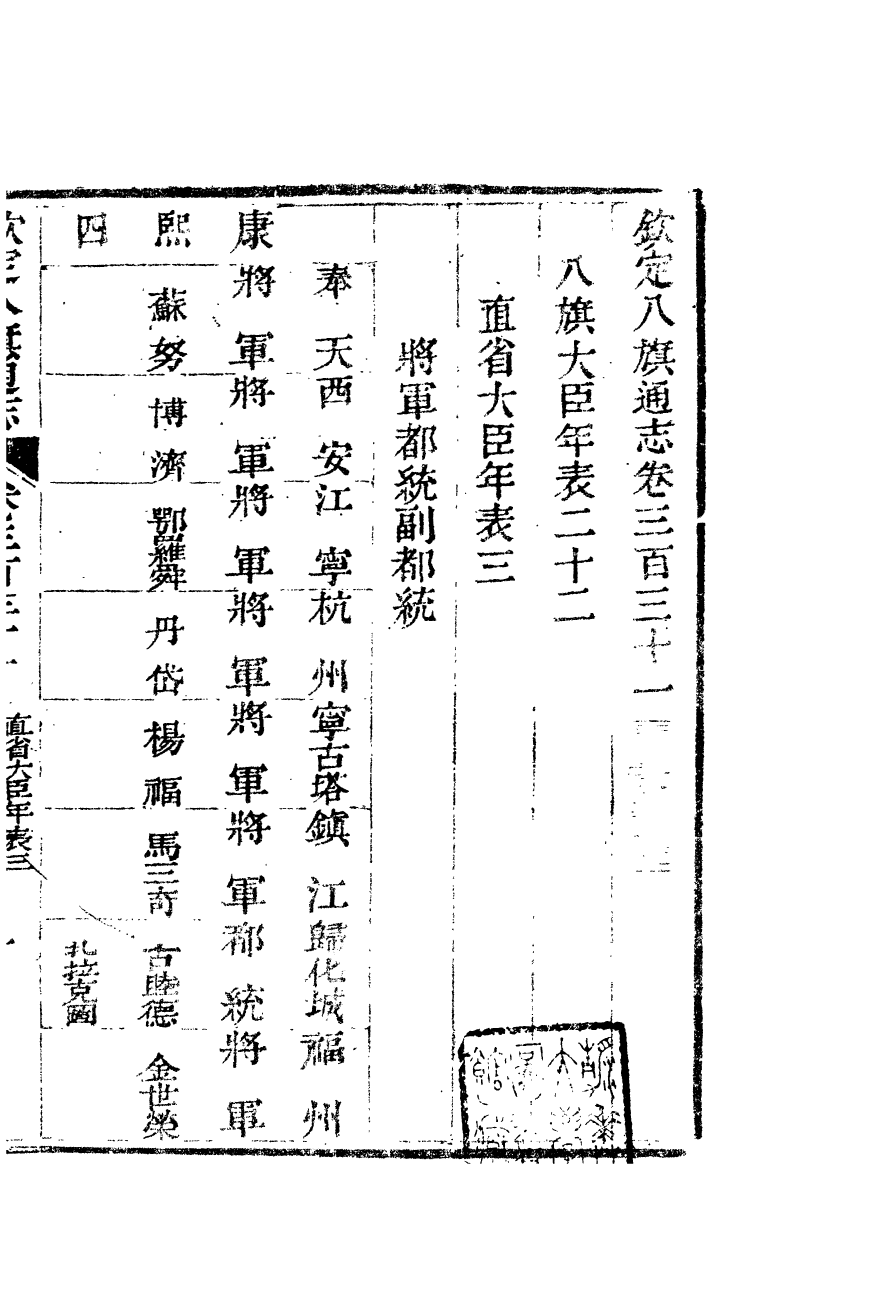 欽定八旗通志卷三百三十一
八旗大臣年表二十二
直省大臣年表三
將軍都統副都統
奉天 西安 江寧 杭州 寧古塔 鎭江 歸化城 福州
康 將軍 將軍 將軍 將軍 將軍 將軍 都統 將軍
熙 蘇努 博濟 鄂羅舜 丹岱 楊福 馬三奇 古睦德 金世榮
四 扎拉克圖
直省大臣年表三